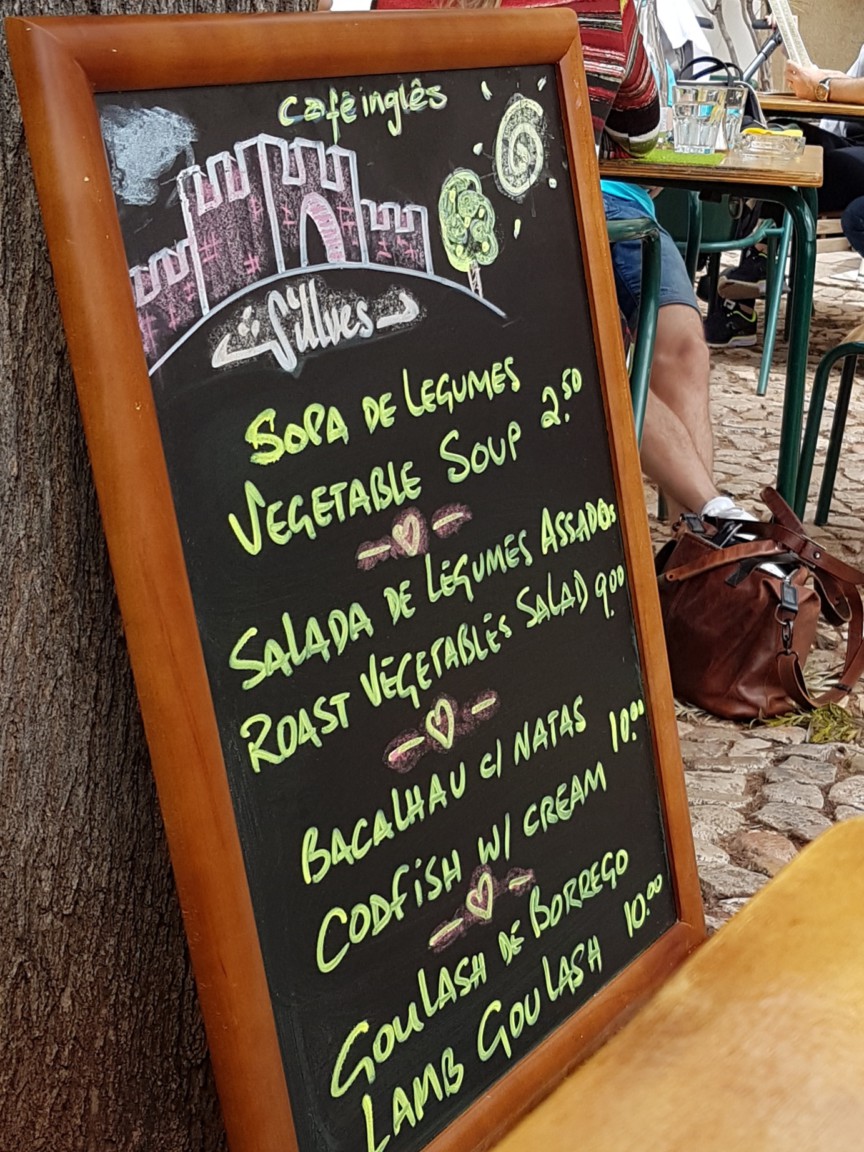 café inglês
Silves
SOPA DE LEGUMES
VEGETABLE SOUP 2.50
SALADA DE LEGUMES ASSADOS
ROAST VEGETABLES SALAD 9.00
BACALHAU C/ NATAS 10.00
CODFISH W/ CREAM
GOULASH DE BORREGO
LAMB GOULASH 10.00